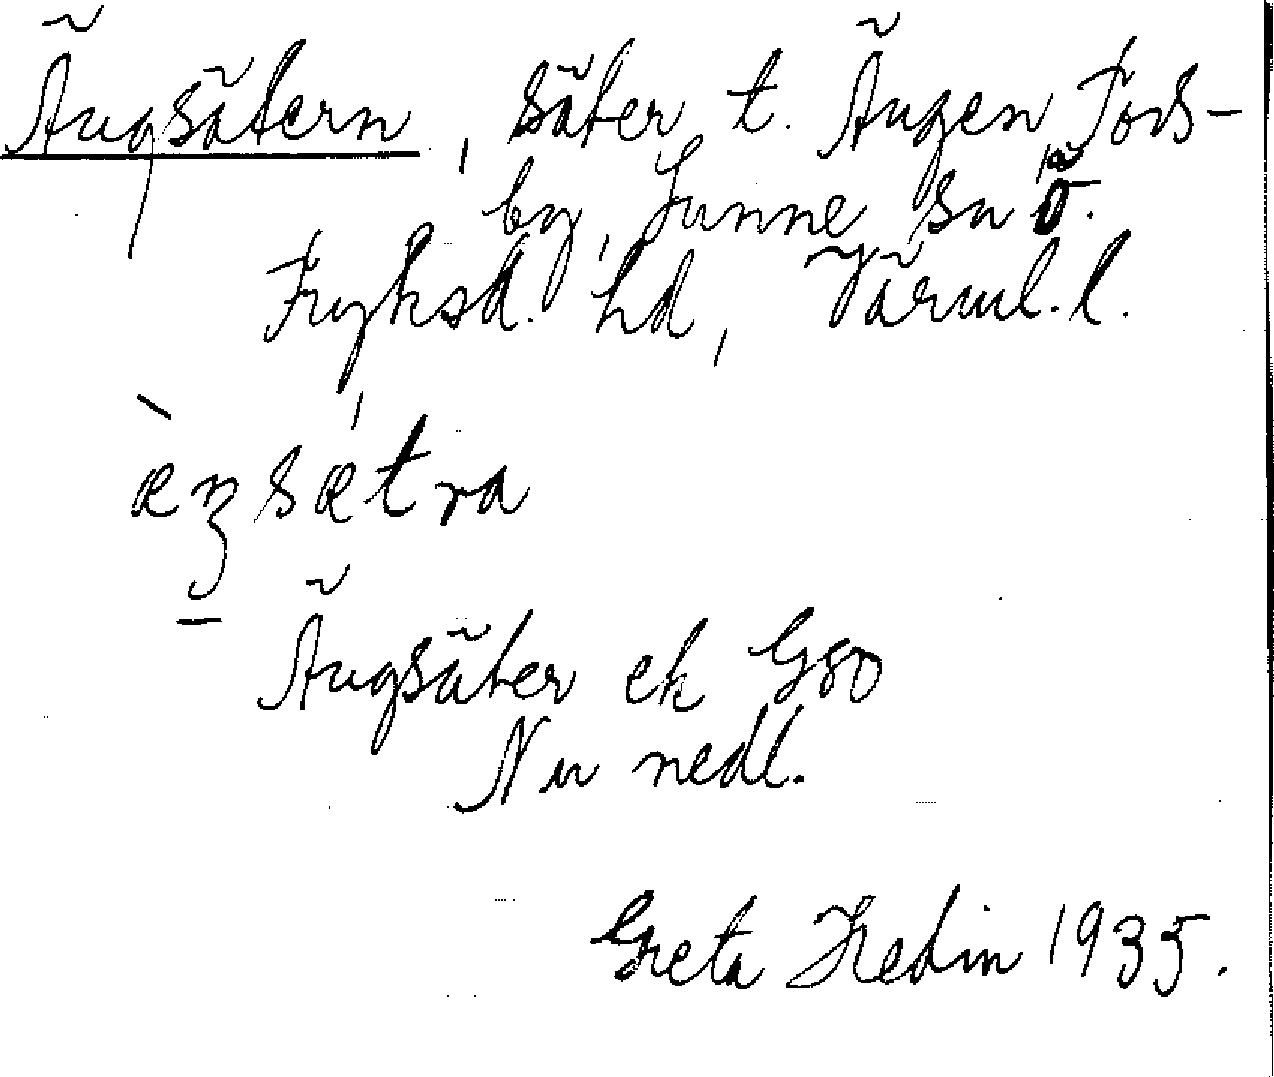 Ängsätern, säter t. Ängen, Tors-
by, Sunne sn o.
Fryksd. hd, Värml. l.
æŋsætra
Ängsäter ek G80
Nu nedl.
Greta Hedin 1935.